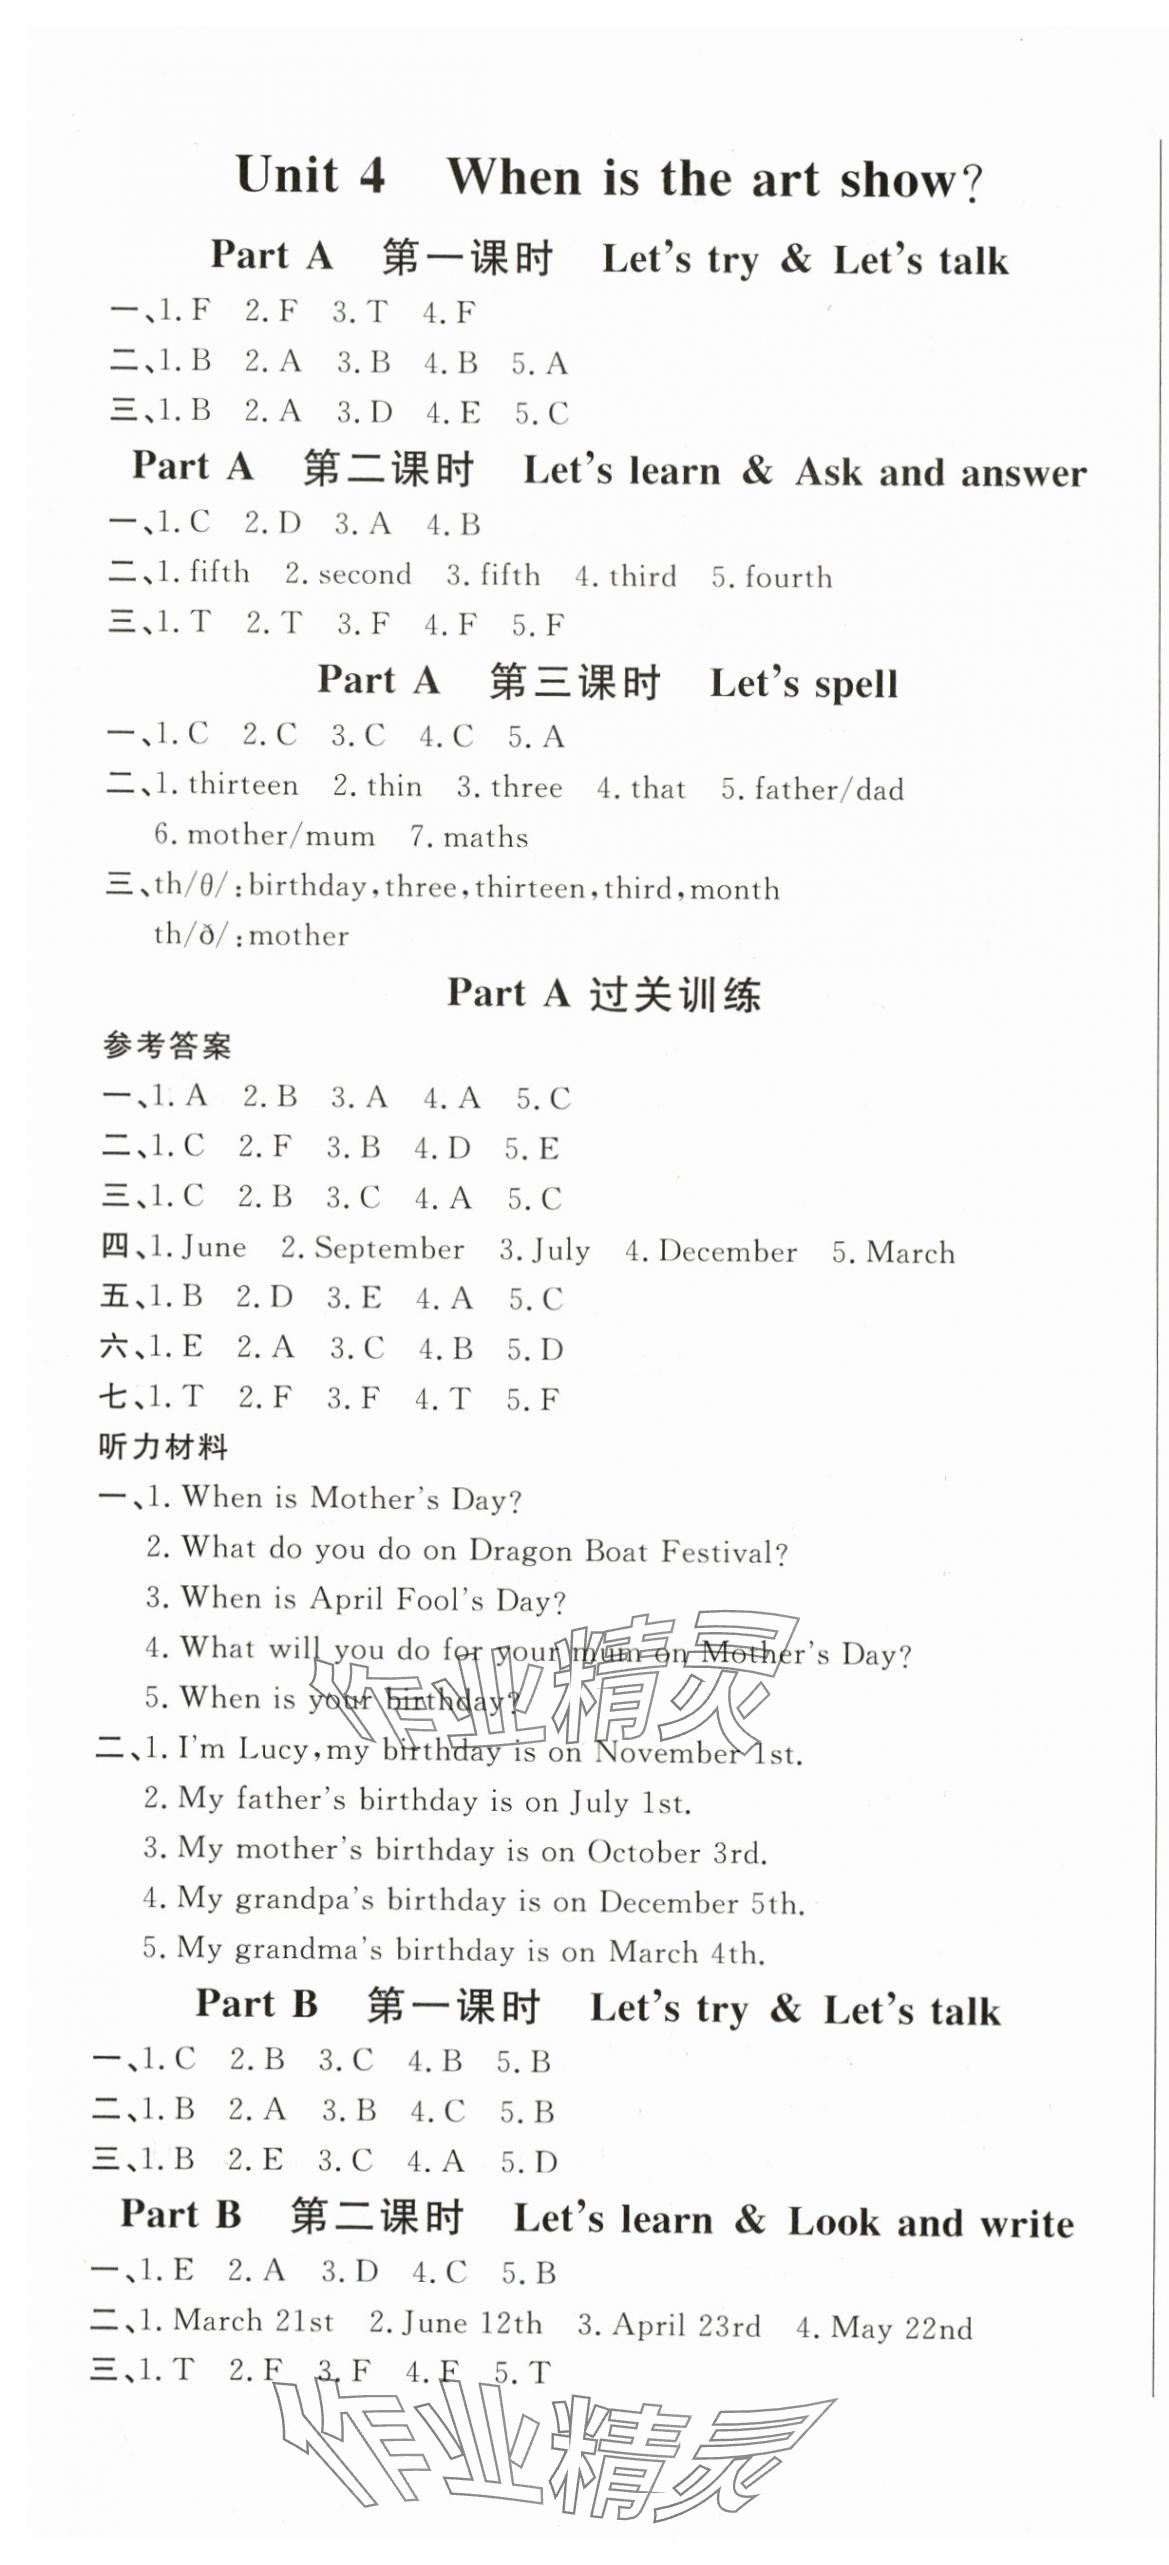 Unit 4 When is the art show?
Part A 第一课时 Let's try & Let's talk
一、1. F 2. F 3. T 4. F
二、1. B 2. A 3. B 4. B 5. A
三、1. B 2. A 3. D 4. E 5. C
Part A 第二课时 Let's learn & Ask and answer
一、1. C 2. D 3. A 4. B
二、1. fifth 2. second 3. fifth 4. third 5. fourth
三、1. T 2. T 3. F 4. F 5. F
Part A 第三课时 Let's spell
一、1. C 2. C 3. C 4. C 5. A
二、1. thirteen 2. thin 3. three 4. that 5. father/dad
6. mother/mum 7. maths
三、th/θ/: birthday, three, thirteen, third, month
th/ð/: mother
Part A 过关训练
参考答案
一、1. A 2. B 3. A 4. A 5. C
二、1. C 2. F 3. B 4. D 5. E
三、1. C 2. B 3. C 4. A 5. C
四、1. June 2. September 3. July 4. December 5. March
五、1. B 2. D 3. E 4. A 5. C
六、1. E 2. A 3. C 4. B 5. D
七、1. T 2. F 3. F 4. T 5. F
听力材料
一、1. When is Mother's Day?
2. What do you do on Dragon Boat Festival?
3. When is April Fool's Day?
4. What will you do for your mum on Mother's Day?
5. When is your birthday?
作业精灵
二、1. I'm Lucy, my birthday is on November 1st.
2. My father's birthday is on July 1st.
3. My mother's birthday is on October 3rd.
4. My grandpa's birthday is on December 5th.
5. My grandma's birthday is on March 4th.
Part B 第一课时 Let's try & Let's talk
一、1. C 2. B 3. C 4. B 5. B
二、1. B 2. A 3. B 4. C 5. B
三、1. B 2. E 3. C 4. A 5. D
Part B 第二课时 Let's learn & Look and write
一、1. E 2. A 3. D 4. C 5. B
二、1. March 21st 2. June 12th 3. April 23rd 4. May 22nd
三、1. T 2. F 3. F 4. F 5. T
作业精灵